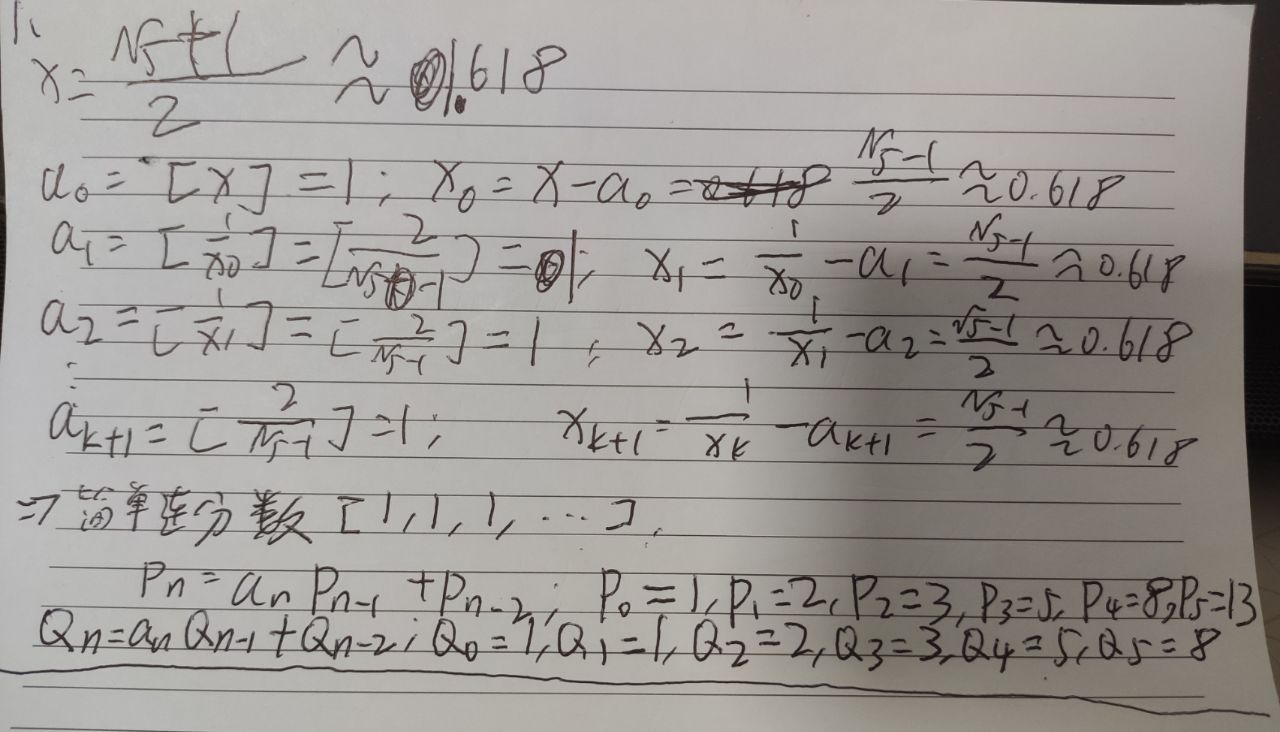 1.
x = (√5+1)/2 ≈ 1.618
a₀ = [x] = 1; x₀ = x - a₀ = (√5-1)/2 ≈ 0.618
a₁ = [1/x₀] = [2/(√5-1)] = 1; x₁ = 1/x₀ - a₁ = (√5-1)/2 ≈ 0.618
a₂ = [1/x₁] = [2/(√5-1)] = 1; x₂ = 1/x₁ - a₂ = (√5-1)/2 ≈ 0.618
⋮
aₖ₊₁ = [2/(√5-1)] = 1; xₖ₊₁ = 1/xₖ - aₖ₊₁ = (√5-1)/2 ≈ 0.618
⇒ 简单连分数 [1,1,1,...].
Pₙ = aₙPₙ₋₁ + Pₙ₋₂; P₀=1, P₁=2, P₂=3, P₃=5, P₄=8, P₅=13
Qₙ = aₙQₙ₋₁ + Qₙ₋₂; Q₀=1, Q₁=1, Q₂=2, Q₃=3, Q₄=5, Q₅=8